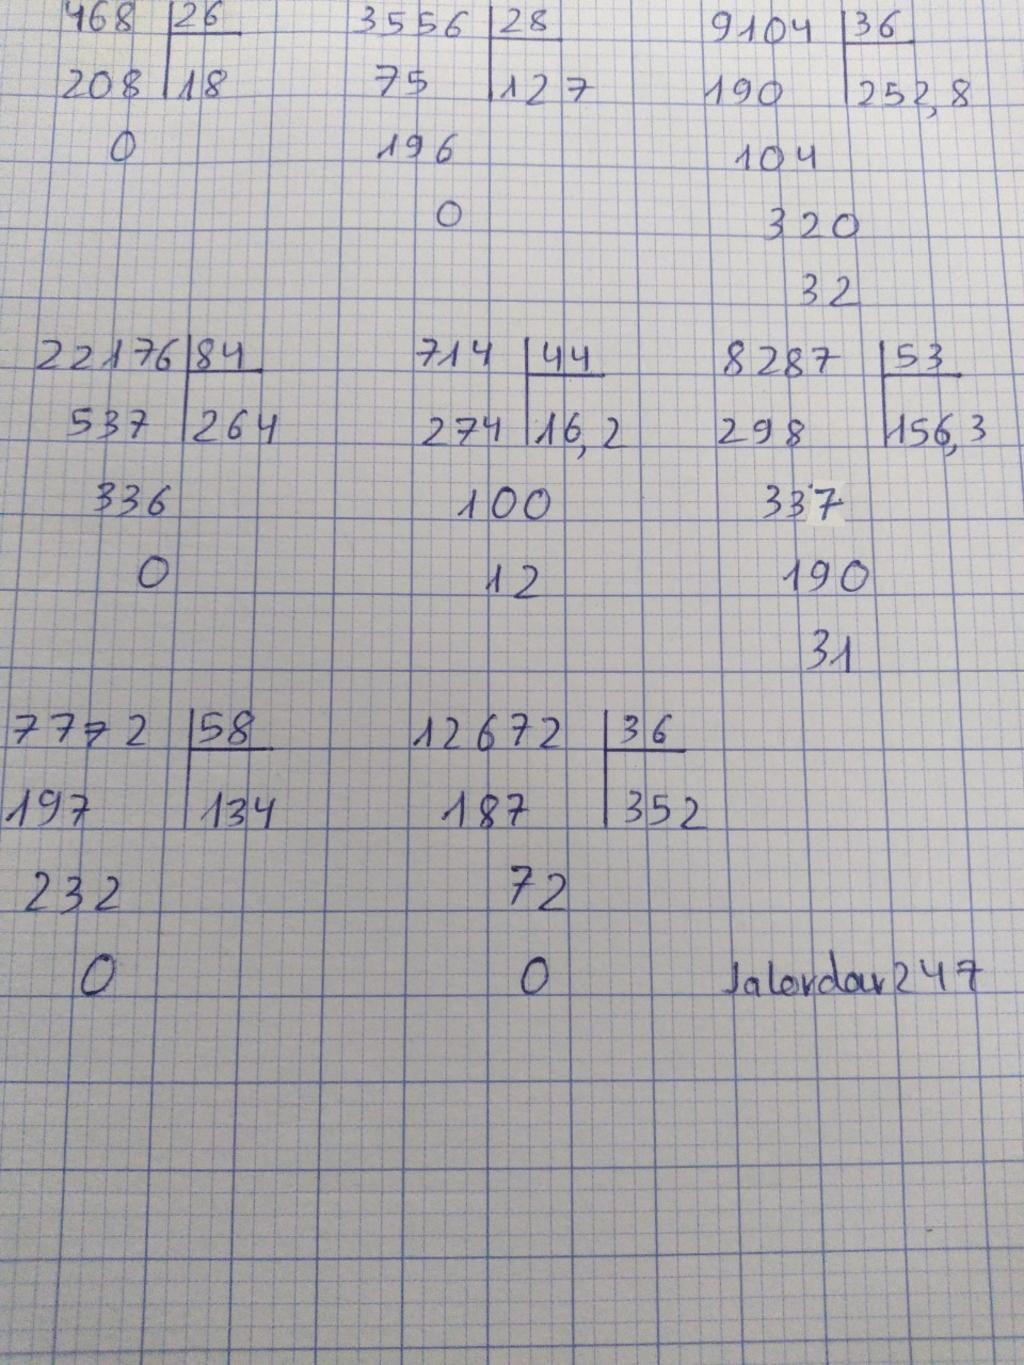 468 26 3556 28 9104 36
208 18 75 127 190 252,8
0 196 104
0 320
32
22176 84 714 44 8287 53
537 264 274 16,2 298 156,3
336 100 337
0 12 190
31
7772 58 12672 36
197 134 187 352
232 72
0 0 Jalordar247